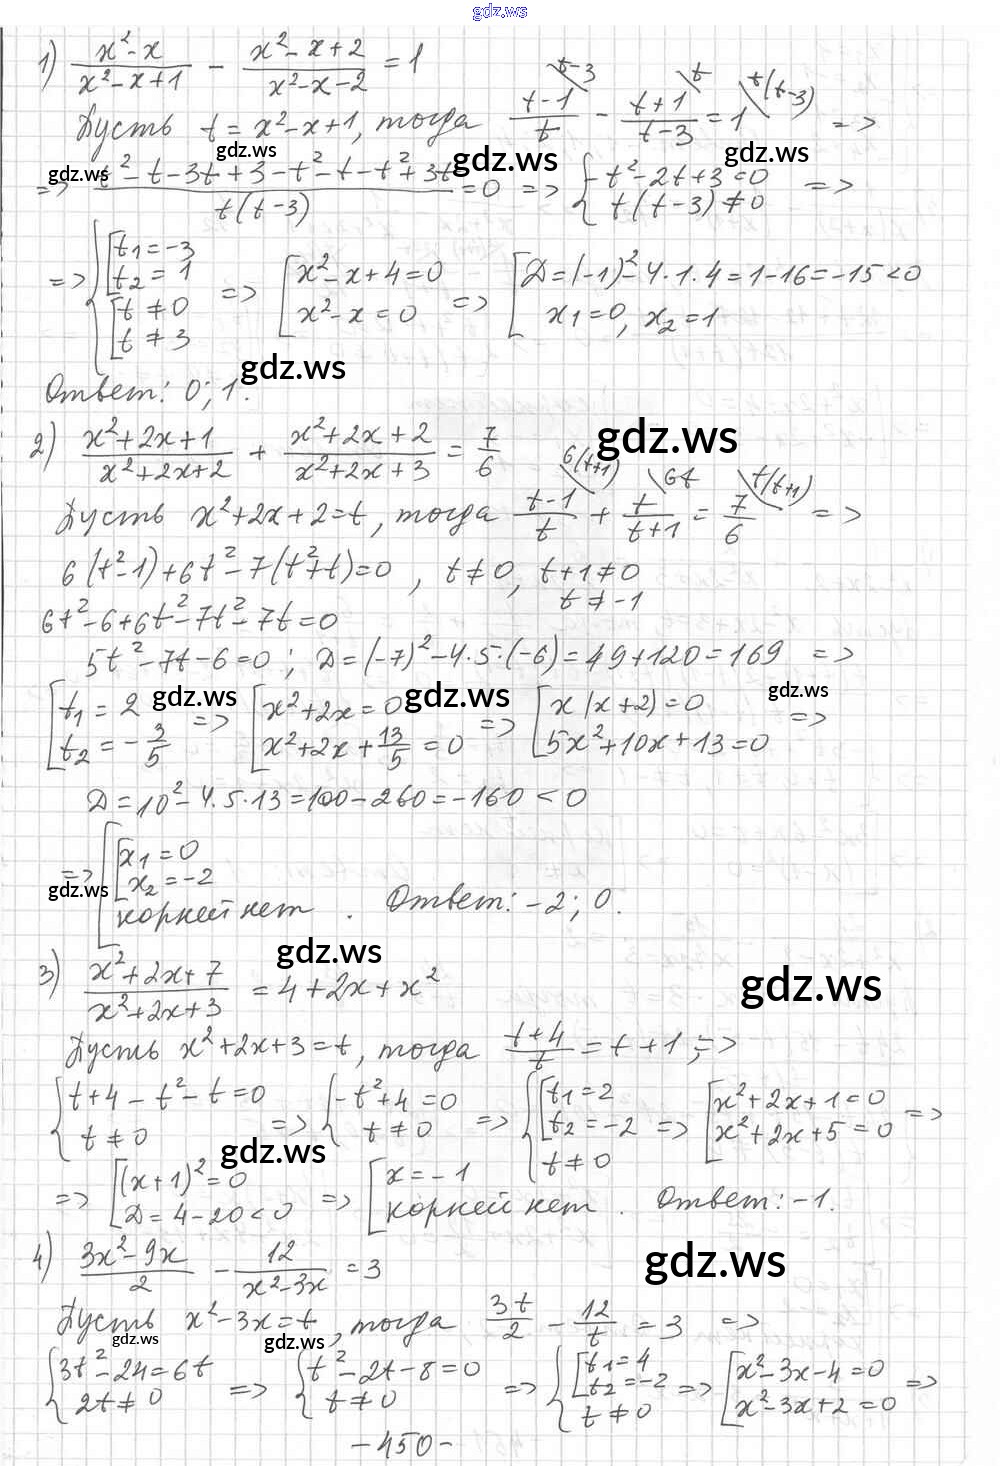 gdz.ws
1) (x²-x)/(x²-x+1) - (x²-x+2)/(x²-x-2) = 1
Пусть t = x²-x+1, тогда (t-1)/t - (t+1)/(t-3) = 1 =>
t-3 t t(t-3)
gdz.ws gdz.ws gdz.ws gdz.ws
=> (t²-t-3t+3-t²-t-t²+3t)/(t(t-3)) = 0 => { t²-2t+3=0 =>
t(t-3)≠0
=> { [ t₁=-3
t₂=1
[ t≠0
t≠3
=> [ x²-x+4=0
x²-x=0
=> [ D=(-1)²-4·1·4=1-16=-15<0
x₁=0, x₂=1
gdz.ws
Ответ: 0; 1.
gdz.ws
2) (x²+2x+1)/(x²+2x+2) + (x²+2x+2)/(x²+2x+3) = 7/6
6(t+1) 6t t(t+1)
Пусть x²+2x+2=t, тогда (t-1)/t + t/(t+1) = 7/6 =>
6(t²-1)+6t²-7(t²+t)=0, t≠0, t+1≠0
t≠-1
6t²-6+6t²-7t²-7t=0
5t²-7t-6=0; D=(-7)²-4·5·(-6)=49+120=169 =>
gdz.ws gdz.ws gdz.ws
[ t₁=2
t₂=-3/5
=> [ x²+2x=0
x²+2x+13/5=0
=> [ x(x+2)=0
5x²+10x+13=0 =>
D=10²-4·5·13=100-260=-160<0
gdz.ws
=> [ [ x₁=0
x₂=-2
корней нет. Ответ: -2; 0.
gdz.ws
gdz.ws
3) (x²+2x+7)/(x²+2x+3) = 4+2x+x²
Пусть x²+2x+3=t, тогда (t+4)/t = t+1; =>
{ t+4-t²-t=0
t≠0
=> { -t²+4=0
t≠0
=> { [ t₁=2
t₂=-2
t≠0
=> [ x²+2x+1=0
x²+2x+5=0 =>
gdz.ws
=> [ (x+1)²=0
D=4-20<0
=> [ x=-1
корней нет. Ответ: -1.
gdz.ws
4) (3x²-9x)/2 - 12/(x²-3x) = 3
Пусть x²-3x=t, тогда 3t/2 - 12/t = 3 =>
gdz.ws gdz.ws
{ 3t²-24=6t
2t≠0
=> { t²-2t-8=0
t≠0
=> { [ t₁=4
t₂=-2
t≠0
=> [ x²-3x-4=0
x²-3x+2=0 =>
-450-